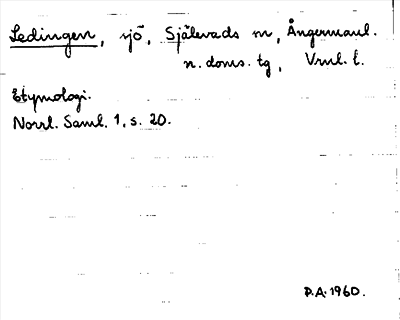 Ledingen, sjö, Själevads sn, Ångermanl.
n. doms. tg, Vrnl. l.
Etymologi.
Norrl. Saml. 1, s. 20.
P.A. 1960.